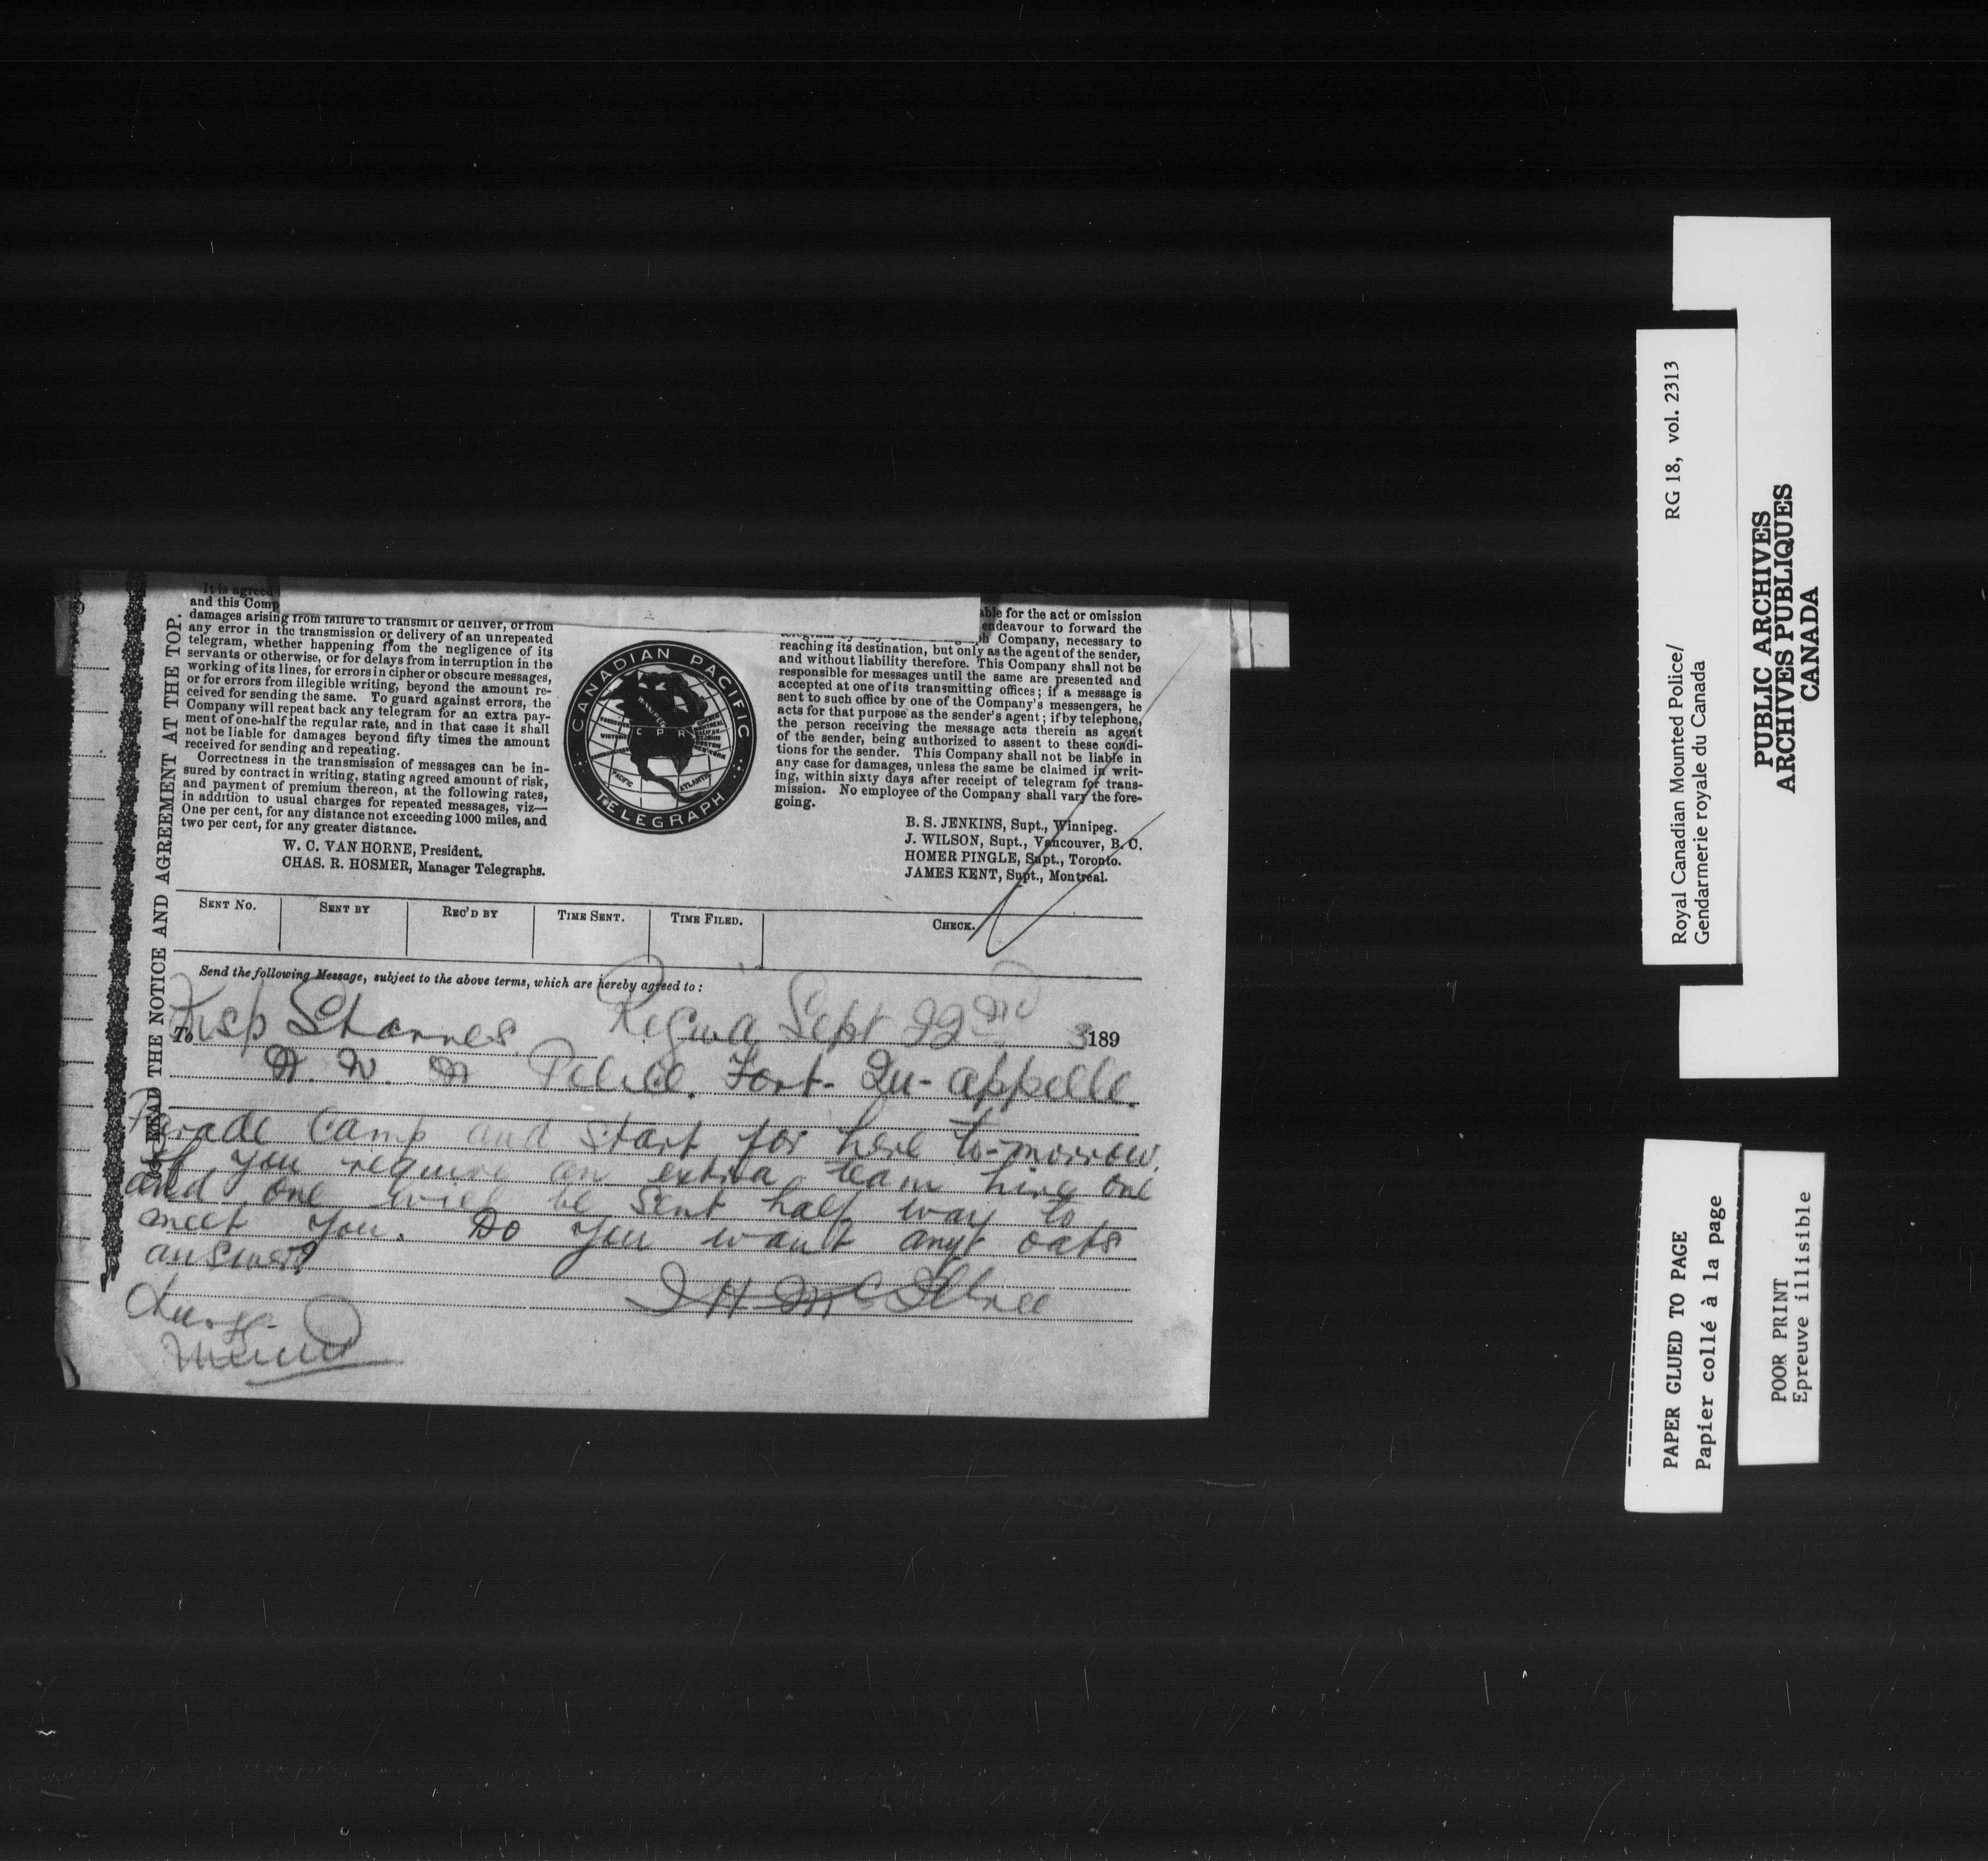 It is agreed
and this Comp
damages arising from failure to transmit or deliver, or from
any error in the transmission or delivery of an unrepeated
telegram, whether happening from the negligence of its
servants or otherwise, or for delays from interruption in the
working of its lines, for errors in cipher or obscure messages,
or for errors from illegible writing, beyond the amount re-
ceived for sending the same. To guard against errors, the
Company will repeat back any telegram for an extra pay-
ment of one-half the regular rate, and in that case it shall
not be liable for damages beyond fifty times the amount
received for sending and repeating.
Correctness in the transmission of messages can be in-
sured by contract in writing, stating agreed amount of risk,
and payment of premium thereon, at the following rates,
in addition to usual charges for repeated messages, viz—
One per cent, for any distance not exceeding 1000 miles, and
two per cent, for any greater distance.
W. C. VAN HORNE, President.
CHAS. R. HOSMER, Manager Telegraphs.
CANADIAN PACIFIC
WINNIPEG
C P R
PACIFIC
ATLANTIC
TELEGRAPH
able for the act or omission
endeavour to forward the
Company, necessary to
reaching its destination, but only as the agent of the sender,
and without liability therefore. This Company shall not be
responsible for messages until the same are presented and
accepted at one of its transmitting offices; if a message is
sent to such office by one of the Company's messengers, he
acts for that purpose as the sender's agent; if by telephone,
the person receiving the message acts therein as agent
of the sender, being authorized to assent to these condi-
tions for the sender. This Company shall not be liable in
any case for damages, unless the same be claimed in writ-
ing, within sixty days after receipt of telegram for trans-
mission. No employee of the Company shall vary the fore-
going.
B. S. JENKINS, Supt., Winnipeg.
J. WILSON, Supt., Vancouver, B. C.
HOMER PINGLE, Supt., Toronto.
JAMES KENT, Supt., Montreal.
READ THE NOTICE AND AGREEMENT AT THE TOP.
SENT NO. SENT BY REC'D BY TIME SENT. TIME FILED. CHECK.
Send the following Message, subject to the above terms, which are hereby agreed to:
To Insp Starnes Regina Sept 22nd 3 189
N. W. M Police. Fort- Qu-appelle.
Camp and start for here to-morrow.
If you require an extra team hire one
and one will be sent half way to
meet you. Do you want any oats
answer
J H McIllree
Charge
Royal Canadian Mounted Police/ RG 18, vol. 2313
Gendarmerie royale du Canada
PUBLIC ARCHIVES
ARCHIVES PUBLIQUES
CANADA
PAPER GLUED TO PAGE
Papier collé à la page
POOR PRINT
Epreuve illisible